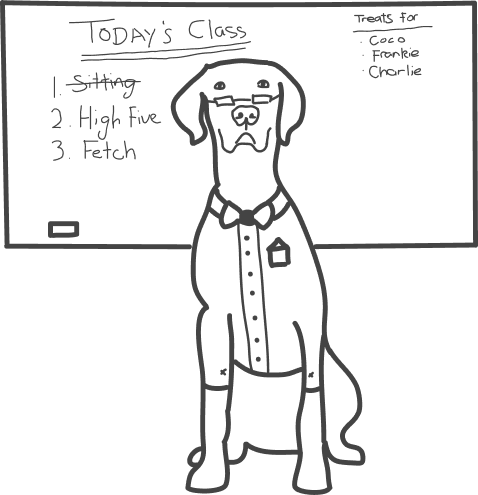 TODAY's Class
1. Sitting
2. High Five
3. Fetch
Treats For
· Coco
· Frankie
· Charlie